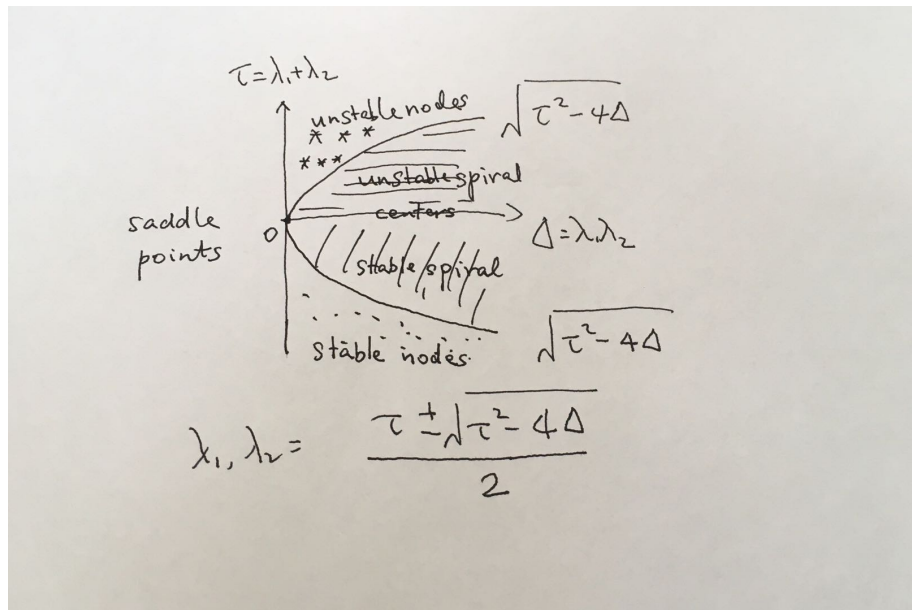 τ=λ₁+λ₂
unstable nodes
√(τ²-4Δ)
unstable spiral
centers
saddle
points
0
Δ=λ₁λ₂
stable spiral
√(τ²-4Δ)
stable nodes
λ₁, λ₂ = (τ ± √(τ²-4Δ)) / 2